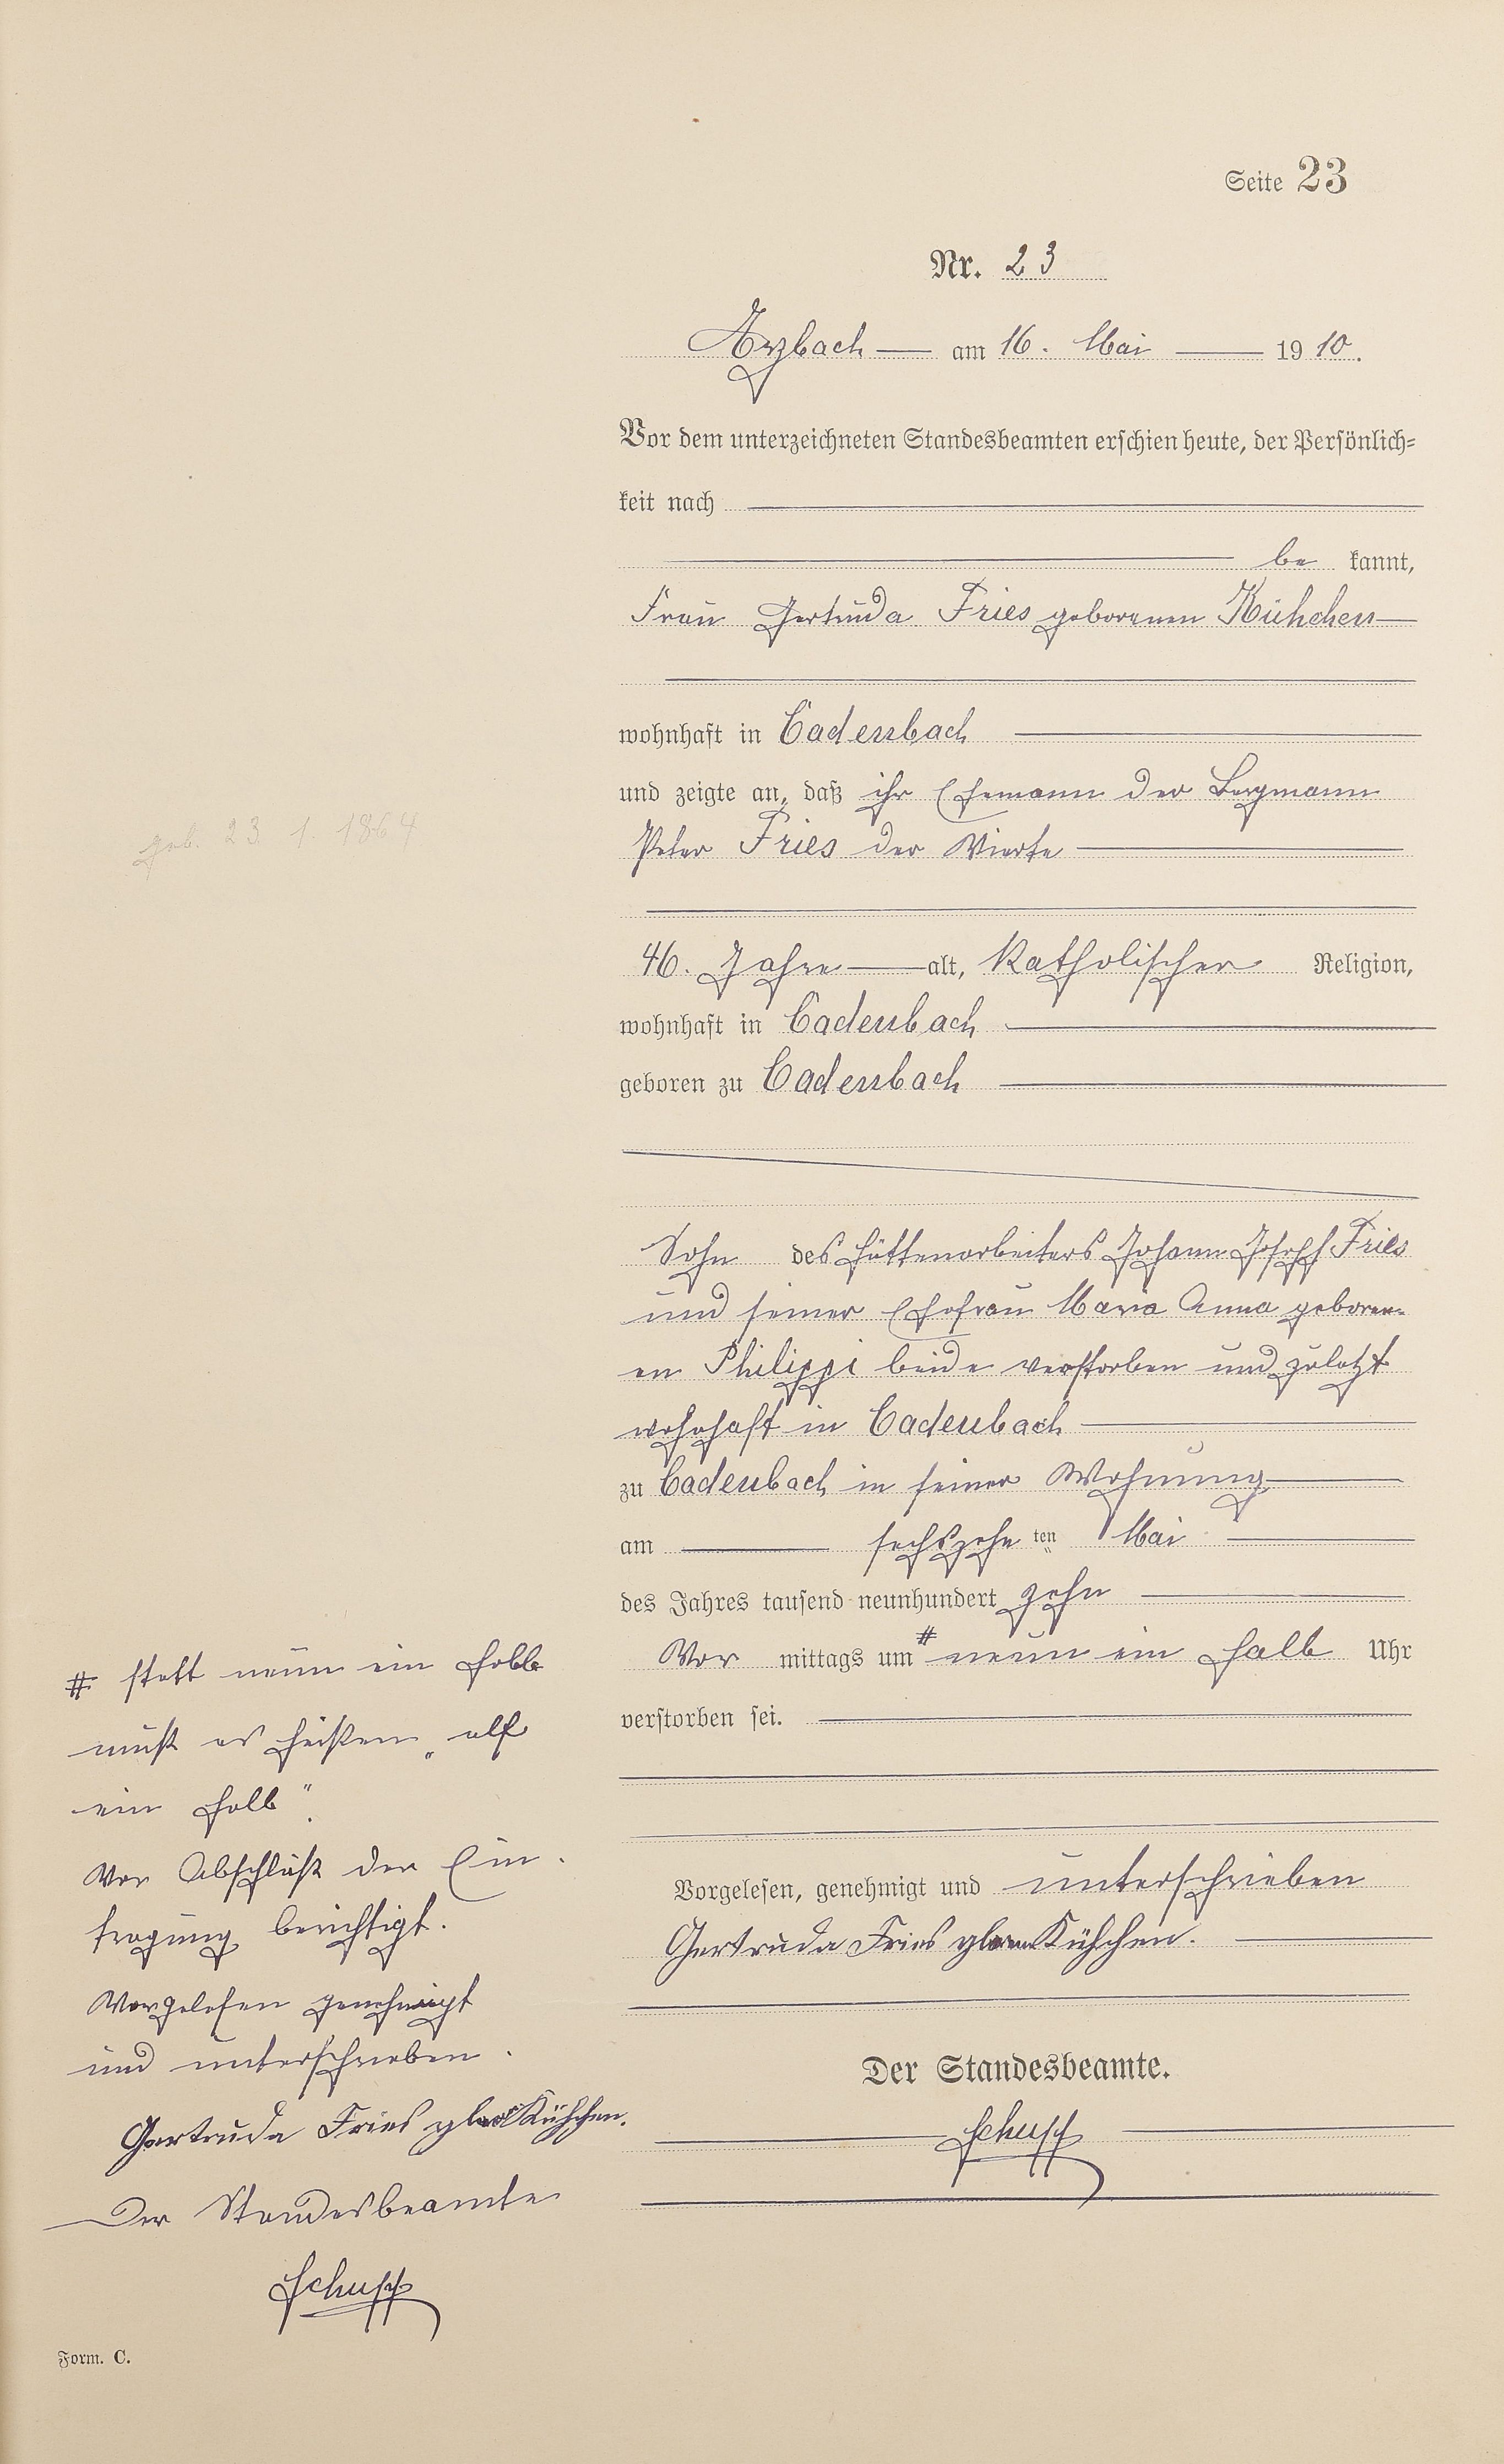 Seite 23
Nr. 23
Arzbach am 16. Mai 1910.
Vor dem unterzeichneten Standesbeamten erschien heute, der Persönlich-
keit nach
be kannt,
Frau Gertruda Fries geborenen Kühchen
wohnhaft in Cadenbach
und zeigte an, daß ihr Ehemann der Bergmann
geb. 23 1. 1864
Peter Fries der Vierte
46. Jahre alt, Katholischer Religion,
wohnhaft in Cadenbach
geboren zu Cadenbach
Sohn des Hüttenarbeiters Johann Joseph Fries
und seiner Ehefrau Maria Anna geboren-
en Philippi beide verstorben und zuletzt
wohnhaft in Cadenbach
zu Cadenbach in seiner Wohnung
am sechszehn ten Mai
des Jahres tausend neunhundert zehn
Vor mittags um # neun ein halb Uhr
verstorben sei.
Vorgelesen, genehmigt und unterschrieben
Gertruda Fries Kühchen.
Der Standesbeamte.
Schupp
# statt neun ein halb
muß es heißen „elf
ein halb".
Vor Abschluß der Ein-
tragung berichtigt.
Vorgelesen genehmigt
und unterschrieben.
Gertruda Fries Kühchen.
Der Standesbeamte
Schupp
Form. C.